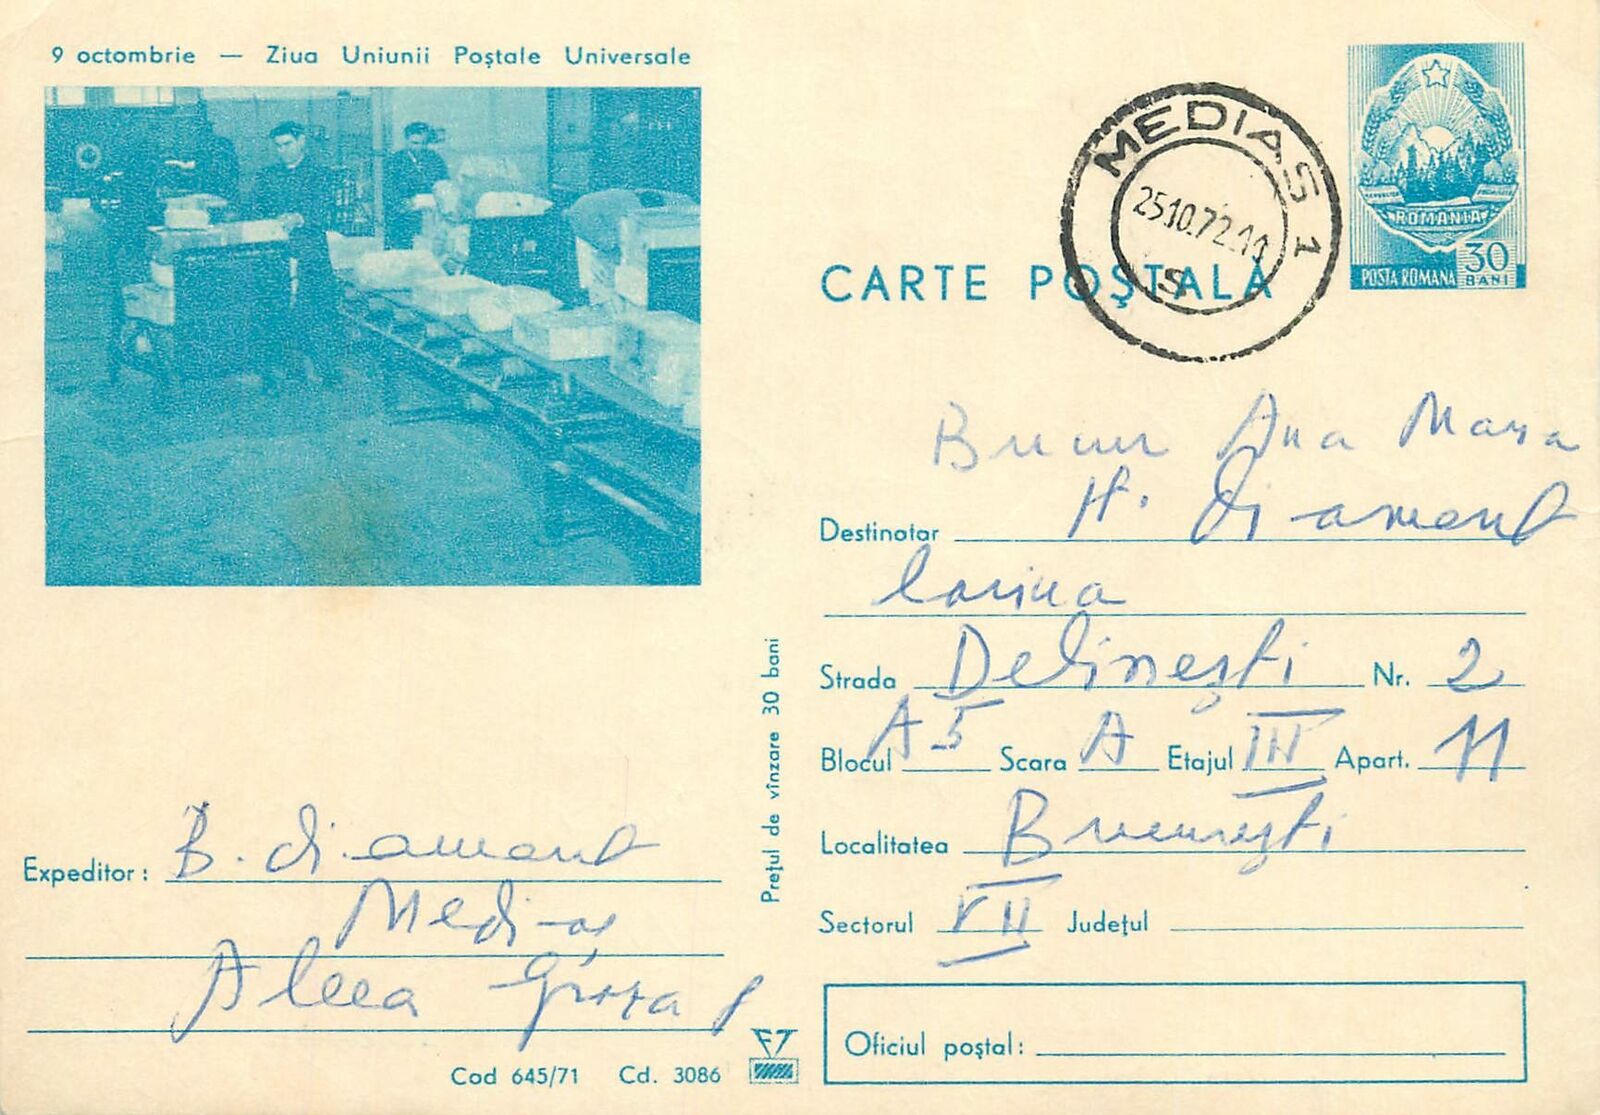 9 octombrie — Ziua Uniunii Poștale Universale
MEDIAS 1
25.10.72.11
S
ROMANIA
POSTA ROMANA 30 BANI
CARTE POȘTALĂ
Ana Maria
Destinatar H. Diamant
Corina
Strada Delinești Nr. 2
Blocul A5 Scara A Etajul III Apart. 11
Localitatea București
Sectorul VII Județul
Oficiul poștal:
Prețul de vînzare 30 bani
Expeditor: B. Diamant
Medias
Aleea
Cod 645/71 Cd. 3086